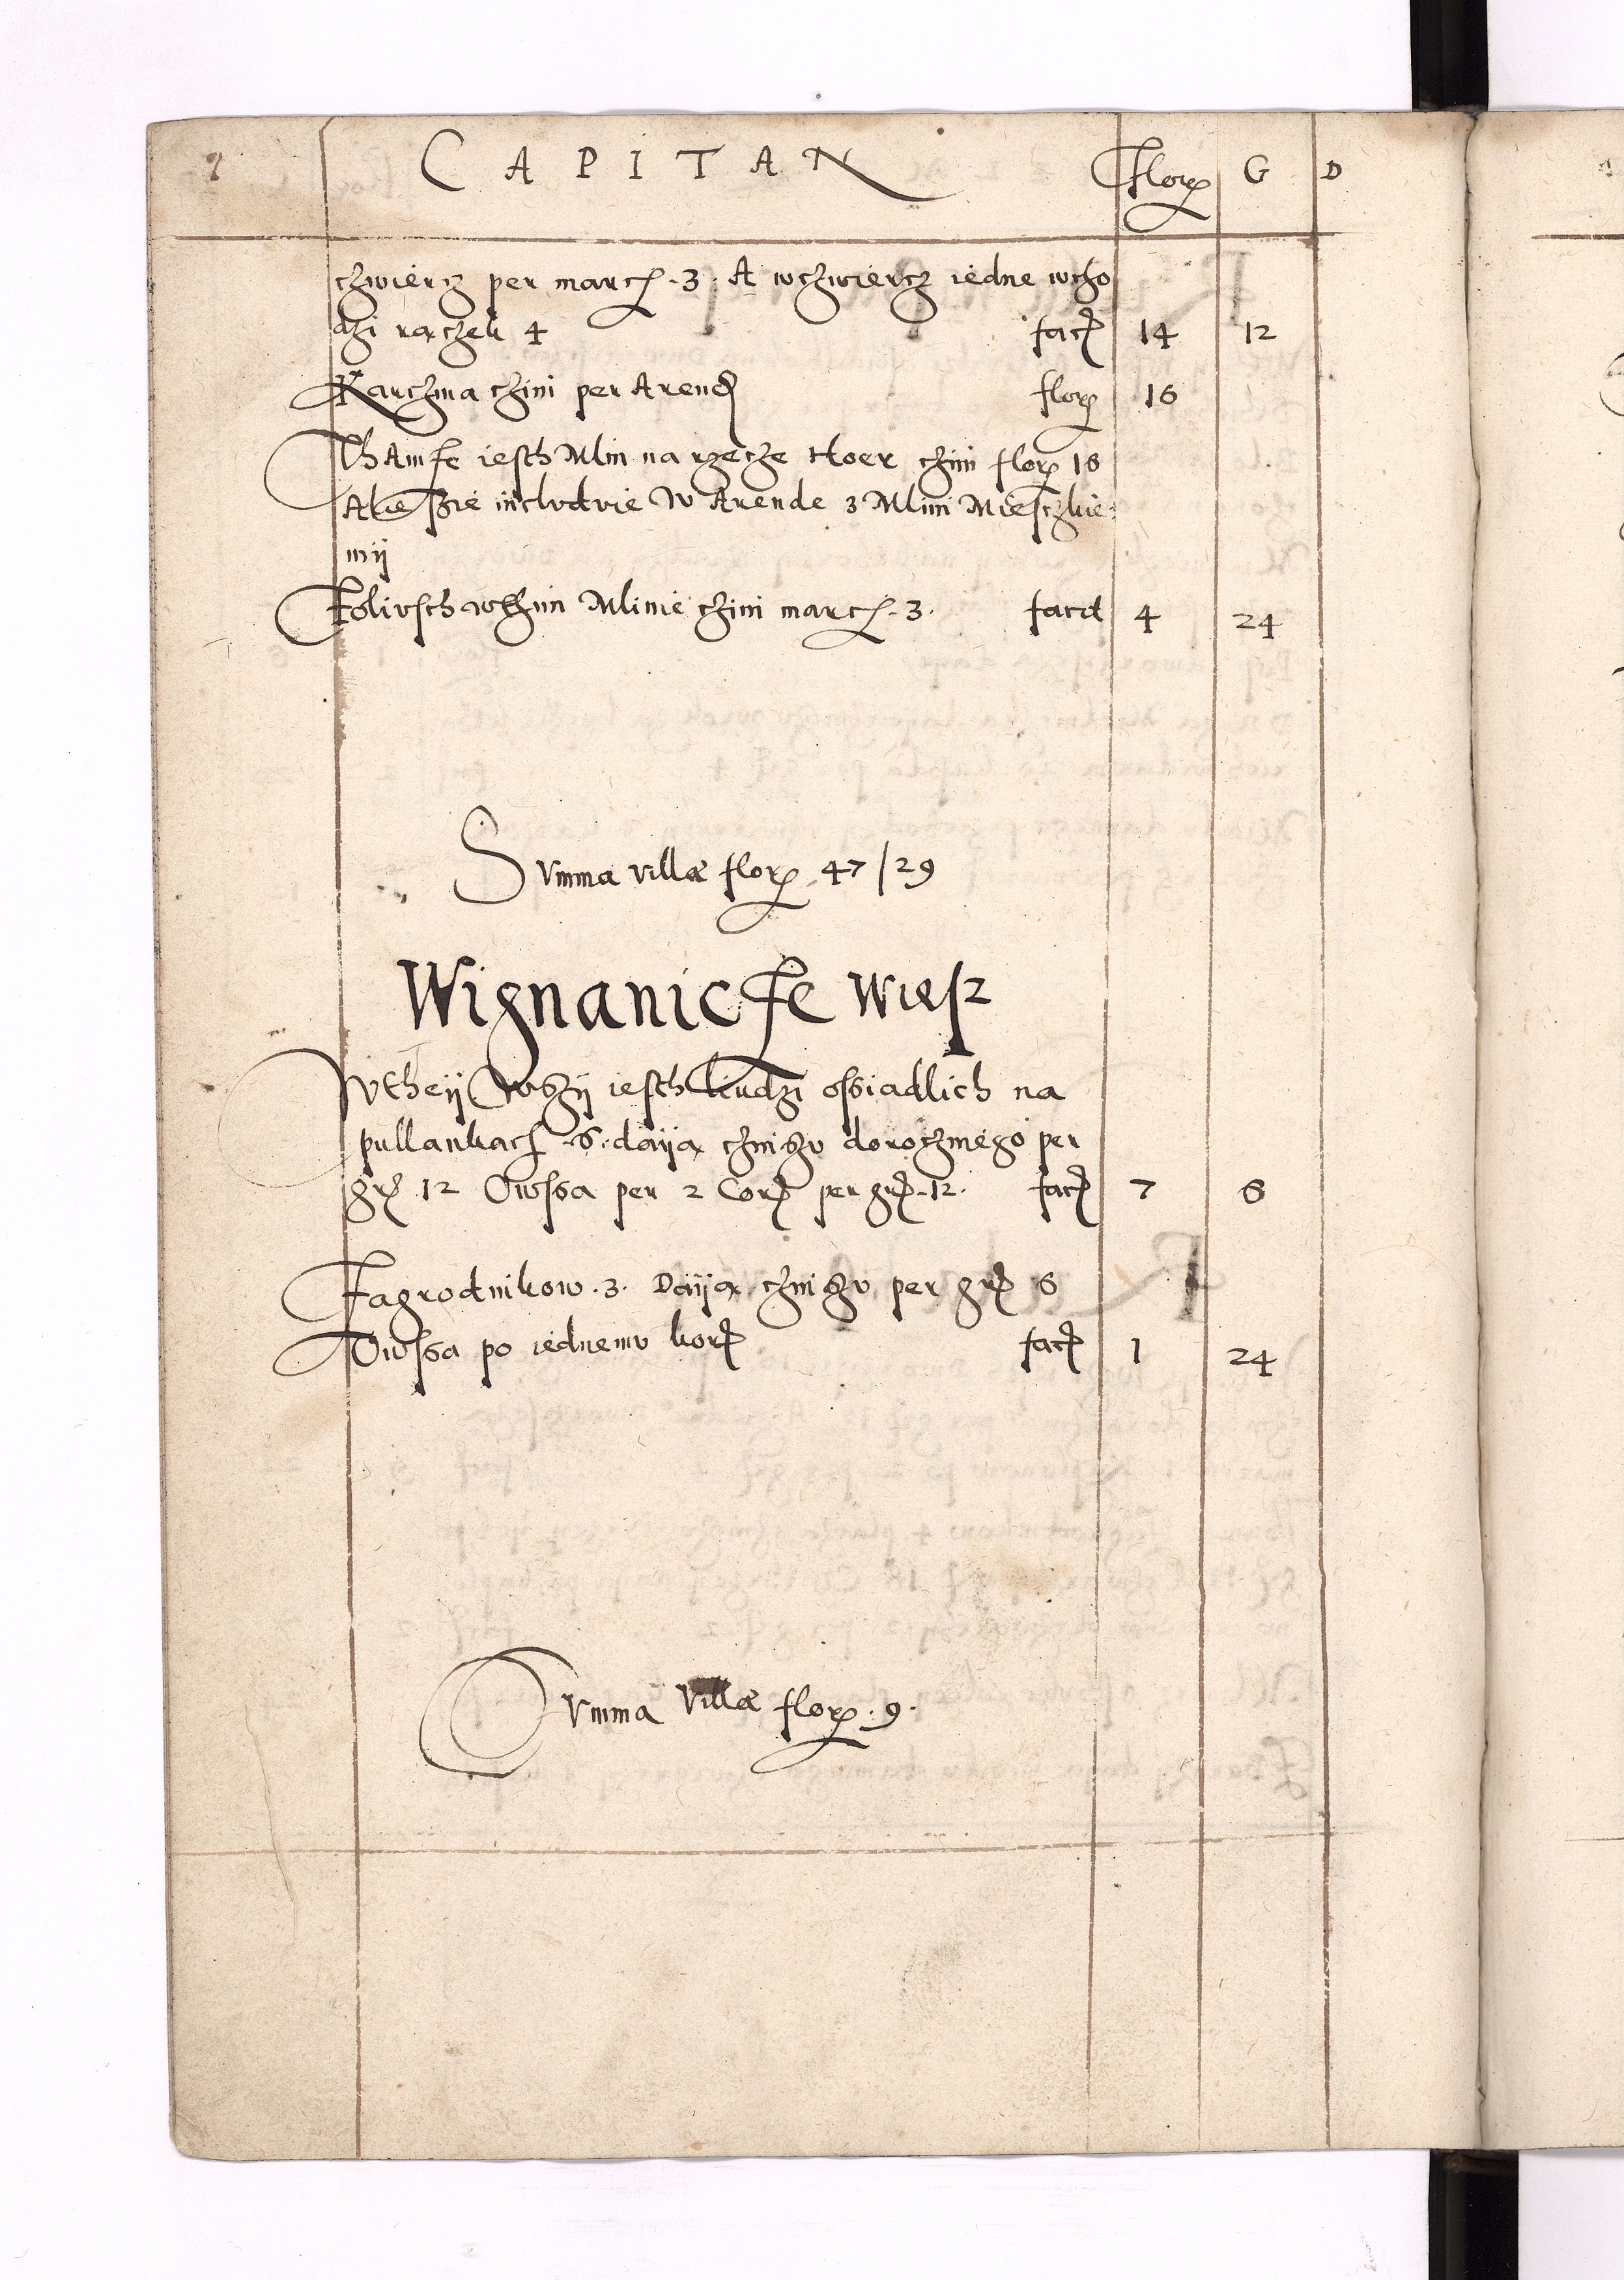 CAPITAN Flor G D
czwiercz per marc. 3. A wczwiercz iedne wcho
dzi raczek 4 fac 14 12
Karczma czini per Arend flor 16
Thamse iesth Mlin na rzecze czini flor 16
Ale szie inclvdvie W Arende 3 Mlini Miesczkie
mij
Folivsch wthim Mlinie czini marc. 3. facit 4 24
Svmma villæ flor 47/29
Wignanicse Wiesz
Wtheij wszij iesth liudzi ossiadlich na
pullankach .6. daija czinszv dorocznego per
gr 12 Owssa per 2 Cor per gr. 12. fac 7 6
Zagrodnikow .3. Daija czinszv per gr 6
Owssa po iednemv kor fac 1 24
Svmma Villæ flor. 9.